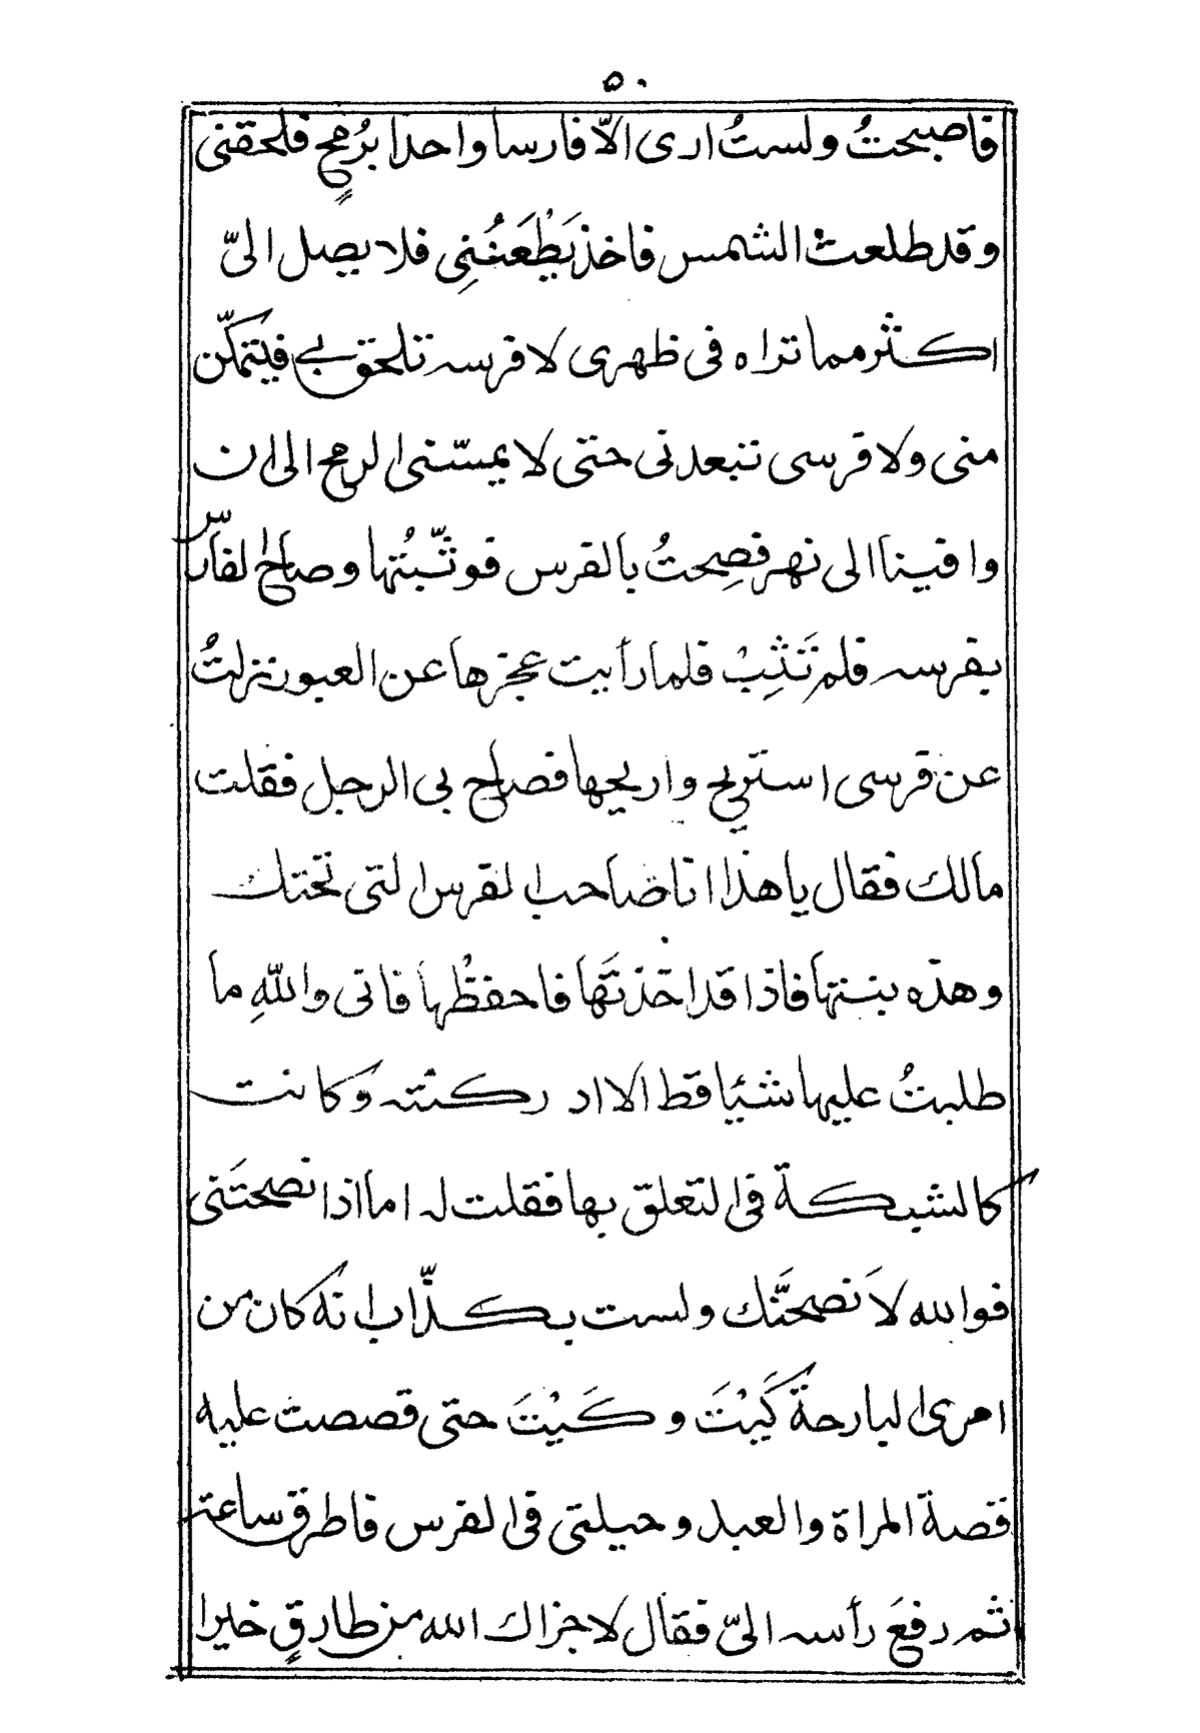 ٥٠
فاصبحتُ ولستُ ارى الّا فارسا واحدا برُمحٍ فلحقنى
وقد طلعت الشمس فاخذ يَطْعَنُنِى فلا يصل الىّ
اكثر مما تراه فى ظهرى لا فرسه تلحق بى فيتمكّن
منى ولا فرسى تنبعد نى حتى لا يمسّنى الرمح الى ان
وافينا الى نهر فصِحتُ بالفرس فوثّبتُها وصاح الفارس
بفرسه فلم تَثِبْ فلما رأيت عجزها عن العبور نزلتُ
عن فرسى استريح واريحها فصاح بى الرجل فقلت
مالك فقال يا هذا انا صاحب الفرس التى تحتك
وهذه بنتها فاذا قد اخذتَها فاحفظْها فانى واللهِ ما
طلبتُ عليها شئيا قط الا ادركته وكانت
كالشبكة فى التعلق بها فقلت له اما اذا نصحتَنى
فوالله لَا نصحتَّك ولست بكذّاب انه كان من
امرى البارحةَ كَيْتَ وكَيْتَ حتى قصصت عليه
قصة المراة والعبد وحيلتى فى الفرس فاطرق ساعة
ثم رفعَ رأسه الىّ فقال لا جزاك الله من طارقٍ خيرا